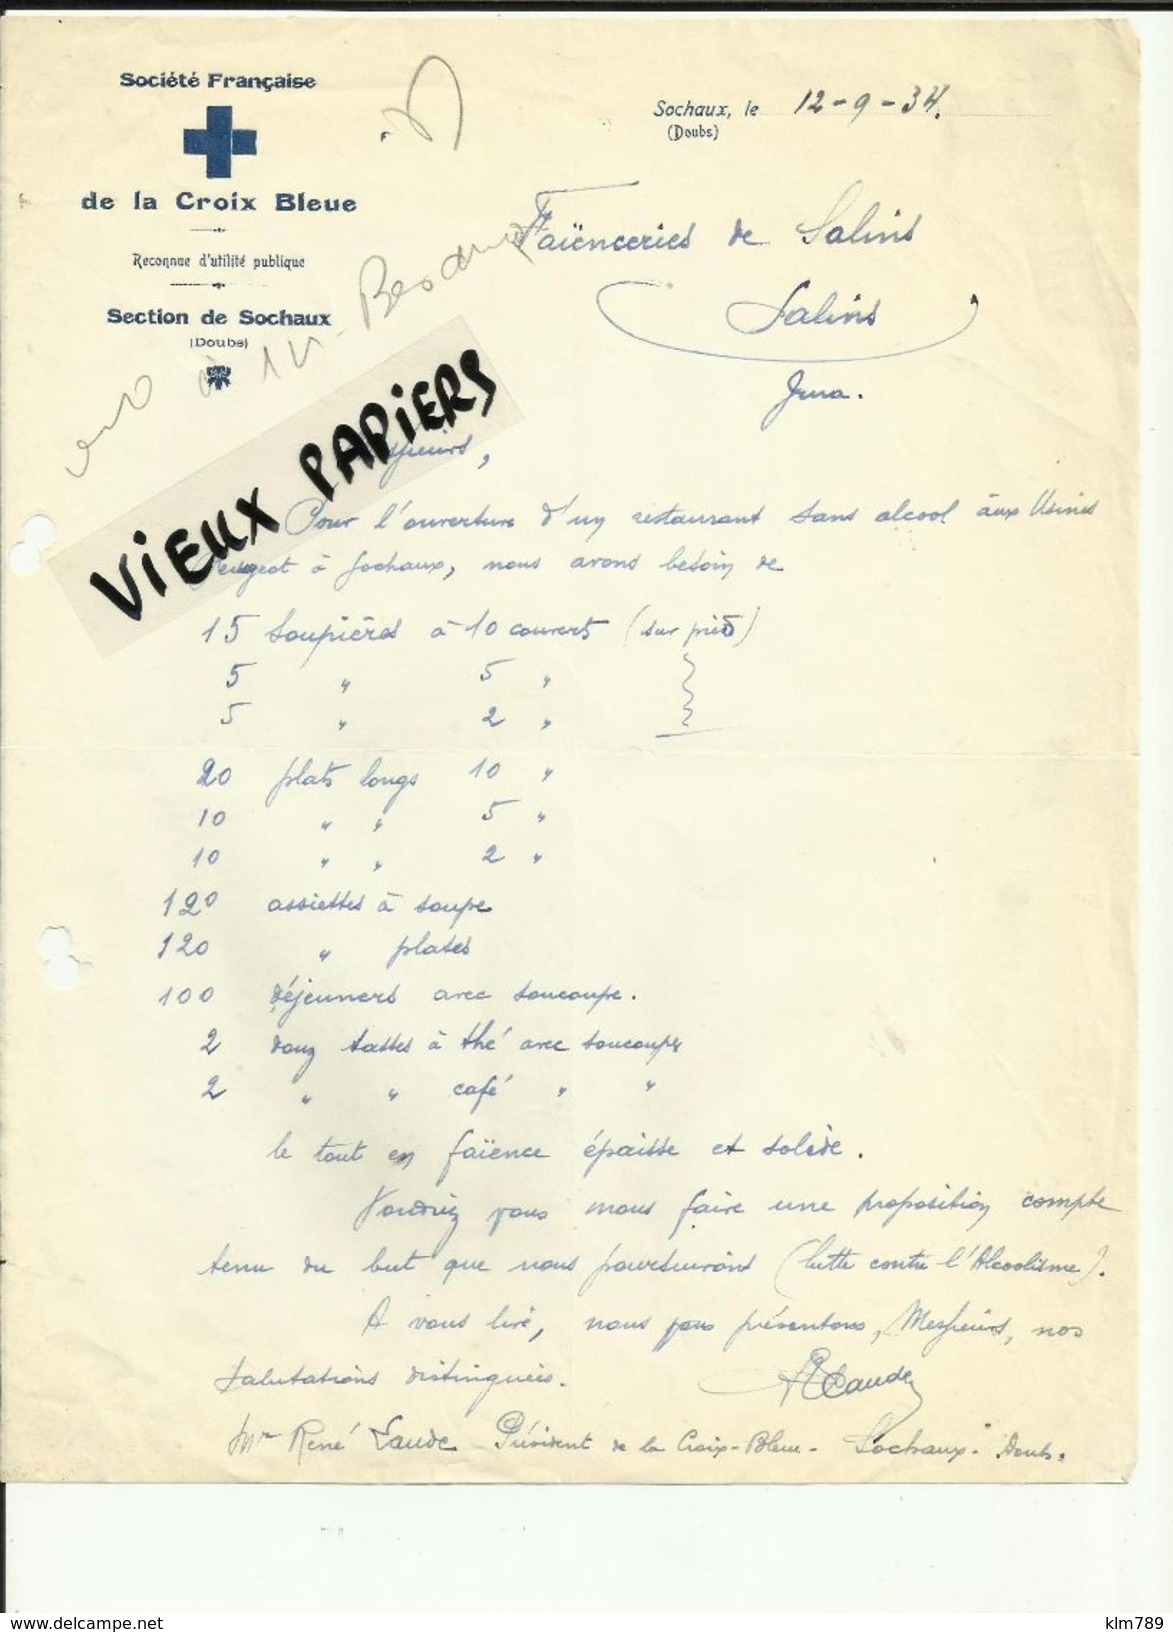 Société Française
de la Croix Bleue
Reconnue d'utilité publique
Section de Sochaux
(Doubs)
Sochaux, le 12-9-34.
(Doubs)
Faïenceries de Salins
Salins
Jura.
VIEUX PAPIERS
Pour l'ouverture d'un restaurant sans alcool aux Usines
Peugeot à Sochaux, nous avons besoin de
15 soupières à 10 couverts (sur pied)
5 " 5 "
5 " 2 "
20 plats longs 10 "
10 " " 5 "
10 " " 2 "
120 assiettes à soupe
120 " plates
100 déjeuners avec soucoupe.
2 douz tasses à thé avec soucoupes
2 " " café " "
le tout en faïence épaisse et solide.
Voudriez vous nous faire une proposition compte
tenu du but que nous poursuivons (lutte contre l'Alcoolisme).
A vous lire, nous vous présentons, Messieurs, nos
salutations distinguées.
Mr René Laude Président de la Croix-Bleue - Sochaux - Doubs.
klm789